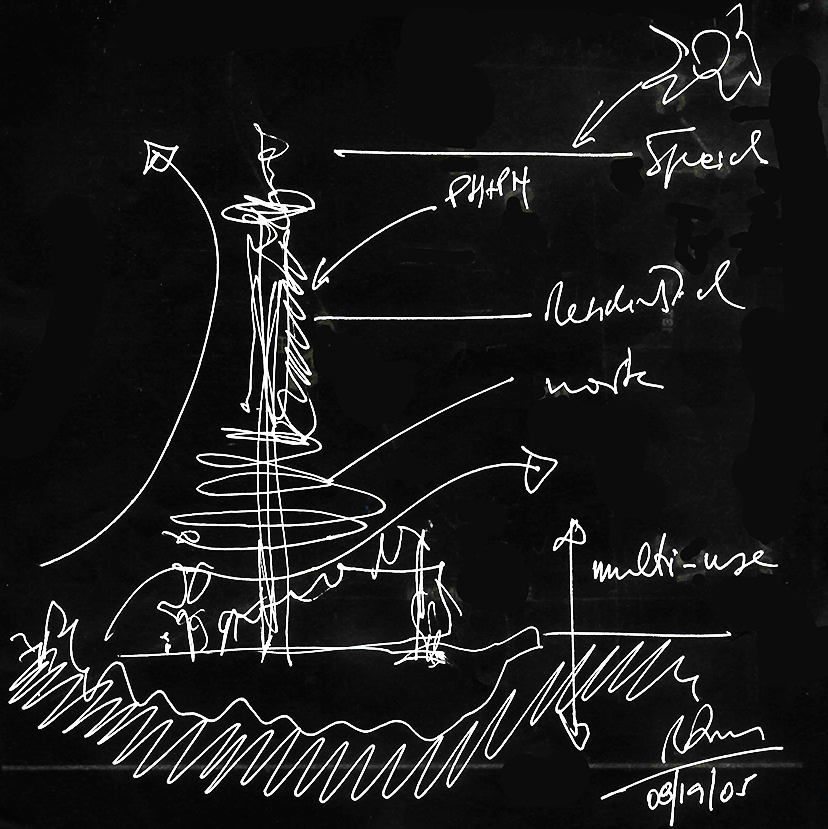 Special
PH+PH
Residential
work
multi-use
08/19/05